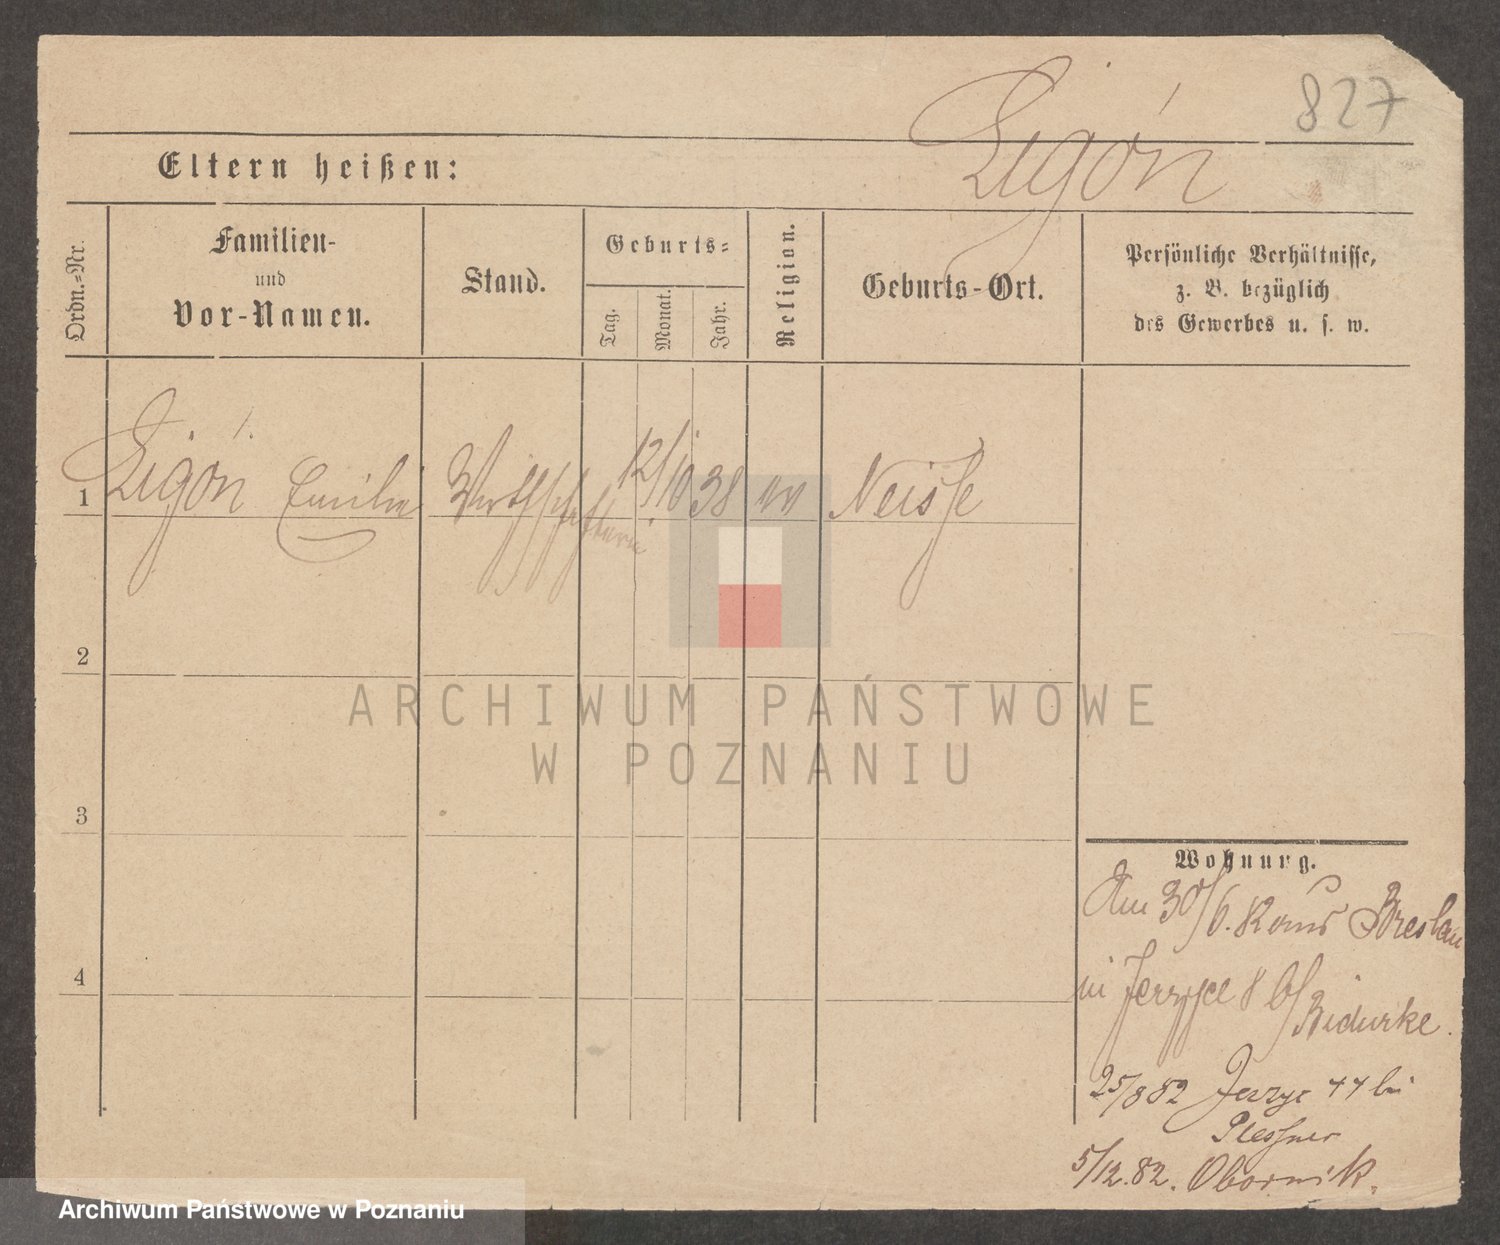 827
Ligón
Eltern heißen:
Ordn.-Nr.
Familien-
und
Vor-Namen.
Stand.
Geburts-
Tag.
Monat.
Jahr.
Religion.
Geburts-Ort.
Persönliche Verhältnisse,
z. B. bezüglich
des Gewerbes u. s. w.
1
Ligón Emilie
Wirthschafterin
12/10 38
Neisse
2
3
4
Wohnung.
Am 30/6. Breslau
in 8 b/
25/8 82 Jerzyc 44 bei
Plessner
5/12.82. Obornik.
ARCHIWUM PAŃSTWOWE
W POZNANIU
Archiwum Państwowe w Poznaniu